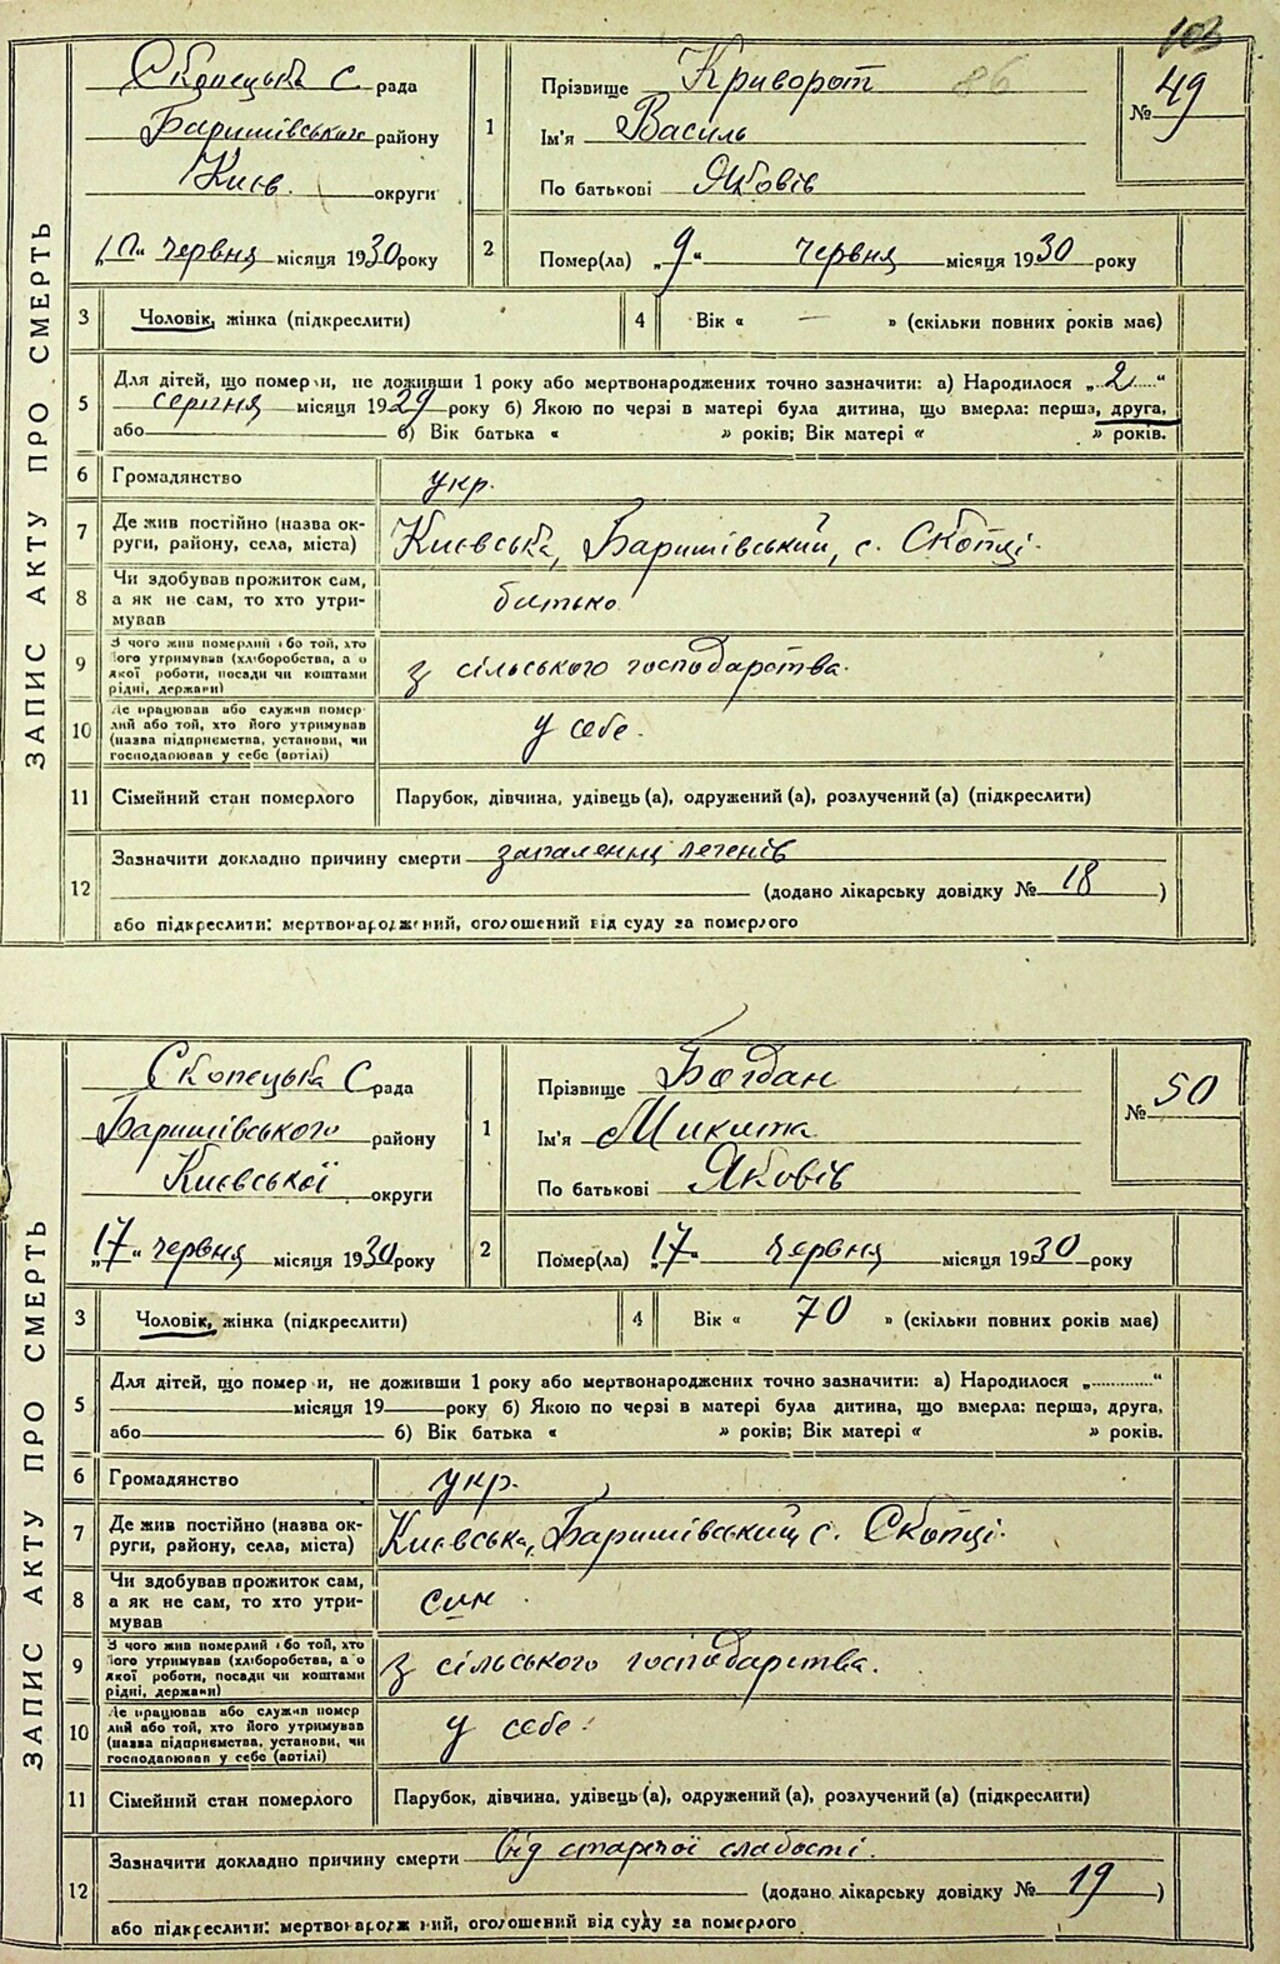 103
ЗАПИС АКТУ ПРО СМЕРТЬ
Скопецька С рада
Баришівського району
Києв. округи
„10“ червня місяця 1930 року
1
Прізвище Криворот 86
Ім'я Василь
По батькові Яковів
№ 49
2 Помер(ла) „9“ червня місяця 1930 року
3 Чоловік, жінка (підкреслити)
4 Вік « — » (скільки повних років має)
5 Для дітей, що померли, не доживши 1 року або мертвонароджених точно зазначити: а) Народилося „2“
серпня місяця 1929 року б) Якою по черзі в матері була дитина, що вмерла: перша, друга,
або б) Вік батька « » років; Вік матері « » років.
6 Громадянство укр.
7 Де жив постійно (назва округи, району, села, міста) Києвська, Баришівський, с. Скопці.
8 Чи здобував прожиток сам,
а як не сам, то хто утри-
мував батько
9 З чого жив померлий або той, хто
його утримував (хліборобства, а о
якої роботи, посади чи коштами
рідні, держави) з сільського господарства.
10 Де працював або служив помер
лий або той, хто його утримував
(назва підприємства, установи, чи
господарював у себе (артілі) у себе.
11 Сімейний стан померлого Парубок, дівчина, удівець (а), одружений (а), розлучений (а) (підкреслити)
12 Зазначити докладно причину смерти запаленнь легенів
(додано лікарську довідку № 18 )
або підкреслити: мертвонароджений, оголошений від суду за померлого
ЗАПИС АКТУ ПРО СМЕРТЬ
Скопецька С рада
Баришівського району
Києвської округи
„17“ червня місяця 1930 року
1
Прізвище Богдан
Ім'я Микита
По батькові Яковів
№ 50
2 Помер(ла) „17“ червня місяця 1930 року
3 Чоловік, жінка (підкреслити)
4 Вік « 70 » (скільки повних років має)
5 Для дітей, що помер и, не доживши 1 року або мертвонароджених точно зазначити: а) Народилося „ “
місяця 19 року б) Якою по черзі в матері була дитина, що вмерла: перша, друга,
або б) Вік батька « » років; Вік матері « » років.
6 Громадянство укр.
7 Де жив постійно (назва округи, району, села, міста) Києвська, Баришівський с. Скопці.
8 Чи здобував прожиток сам,
а як не сам, то хто утри-
мував син.
9 З чого жив померлий або той, хто
його утримував (хліборобства, а о
якої роботи, посади чи коштами
рідні, держави) з сільського господарства.
10 Де працював або служив помер
лий або той, хто його утримував
(назва підприємства, установи, чи
господарював у себе (артілі) у себе.
11 Сімейний стан померлого Парубок, дівчина, удівець (а), одружений (а), розлучений (а) (підкреслити)
12 Зазначити докладно причину смерти від старечої слабості.
(додано лікарську довідку № 19 )
або підкреслити: мертвонародж ний, оголошений від суду за померлого